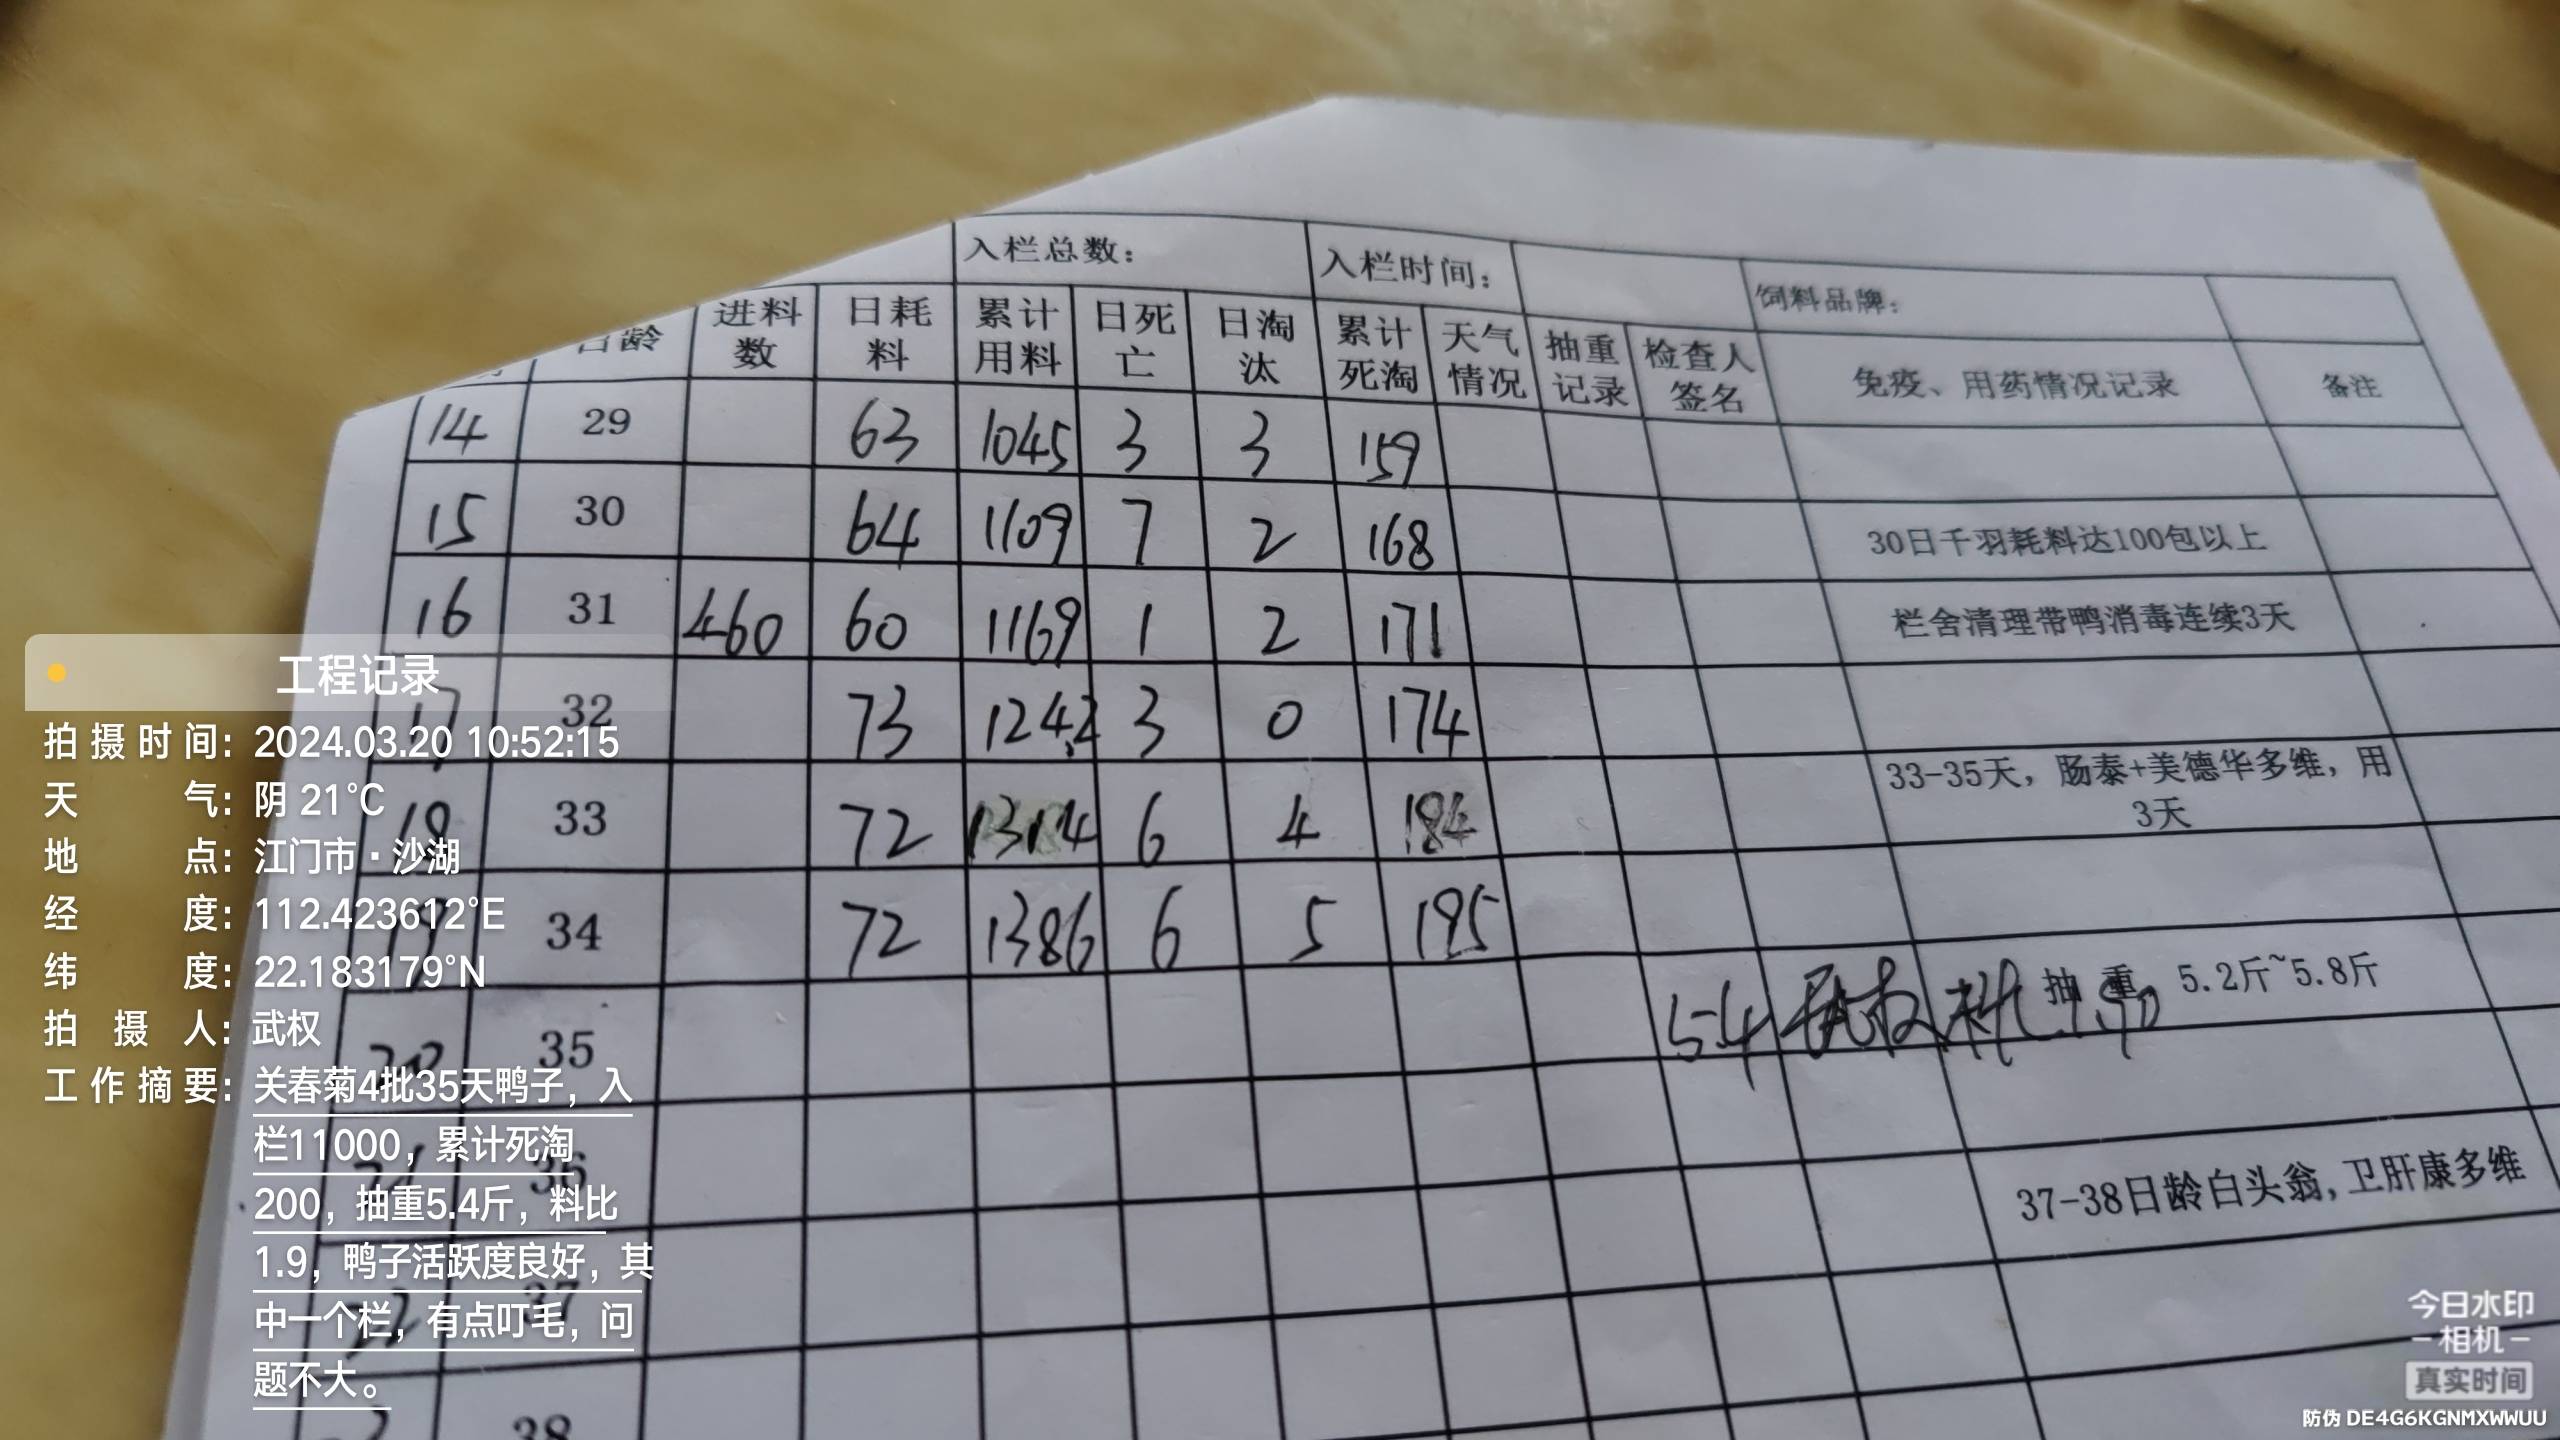 入栏总数： 入栏时间： 饲料品牌：
日龄 进料数 日耗料 累计用料 日死亡 日淘汰 累计死淘 天气情况 抽重记录 检查人签名 免疫、用药情况记录 备注
14 29 63 1045 3 3 159
15 30 64 1109 7 2 168 30日千羽耗料达100包以上
16 31 460 60 1169 1 2 171 栏舍清理带鸭消毒连续3天
17 32 73 1242 3 0 174
18 33 72 1314 6 4 184 33-35天，肠泰+美德华多维，用
3天
19 34 72 1386 6 5 195
20 35 5.4 武权 料比1.90 抽重 5.2斤~5.8斤
21 36
37-38日龄白头翁，卫肝康多维
22 37
38
工程记录
拍摄时间：2024.03.20 10:52:15
天气：阴 21°C
地点：江门市·沙湖
经度：112.423612°E
纬度：22.183179°N
拍摄人：武权
工作摘要：关春菊4批35天鸭子，入
栏11000，累计死淘
200，抽重5.4斤，料比
1.9，鸭子活跃度良好，其
中一个栏，有点叮毛，问
题不大。
今日水印
相机
真实时间
防伪 DE4G6KGNMXWWUU